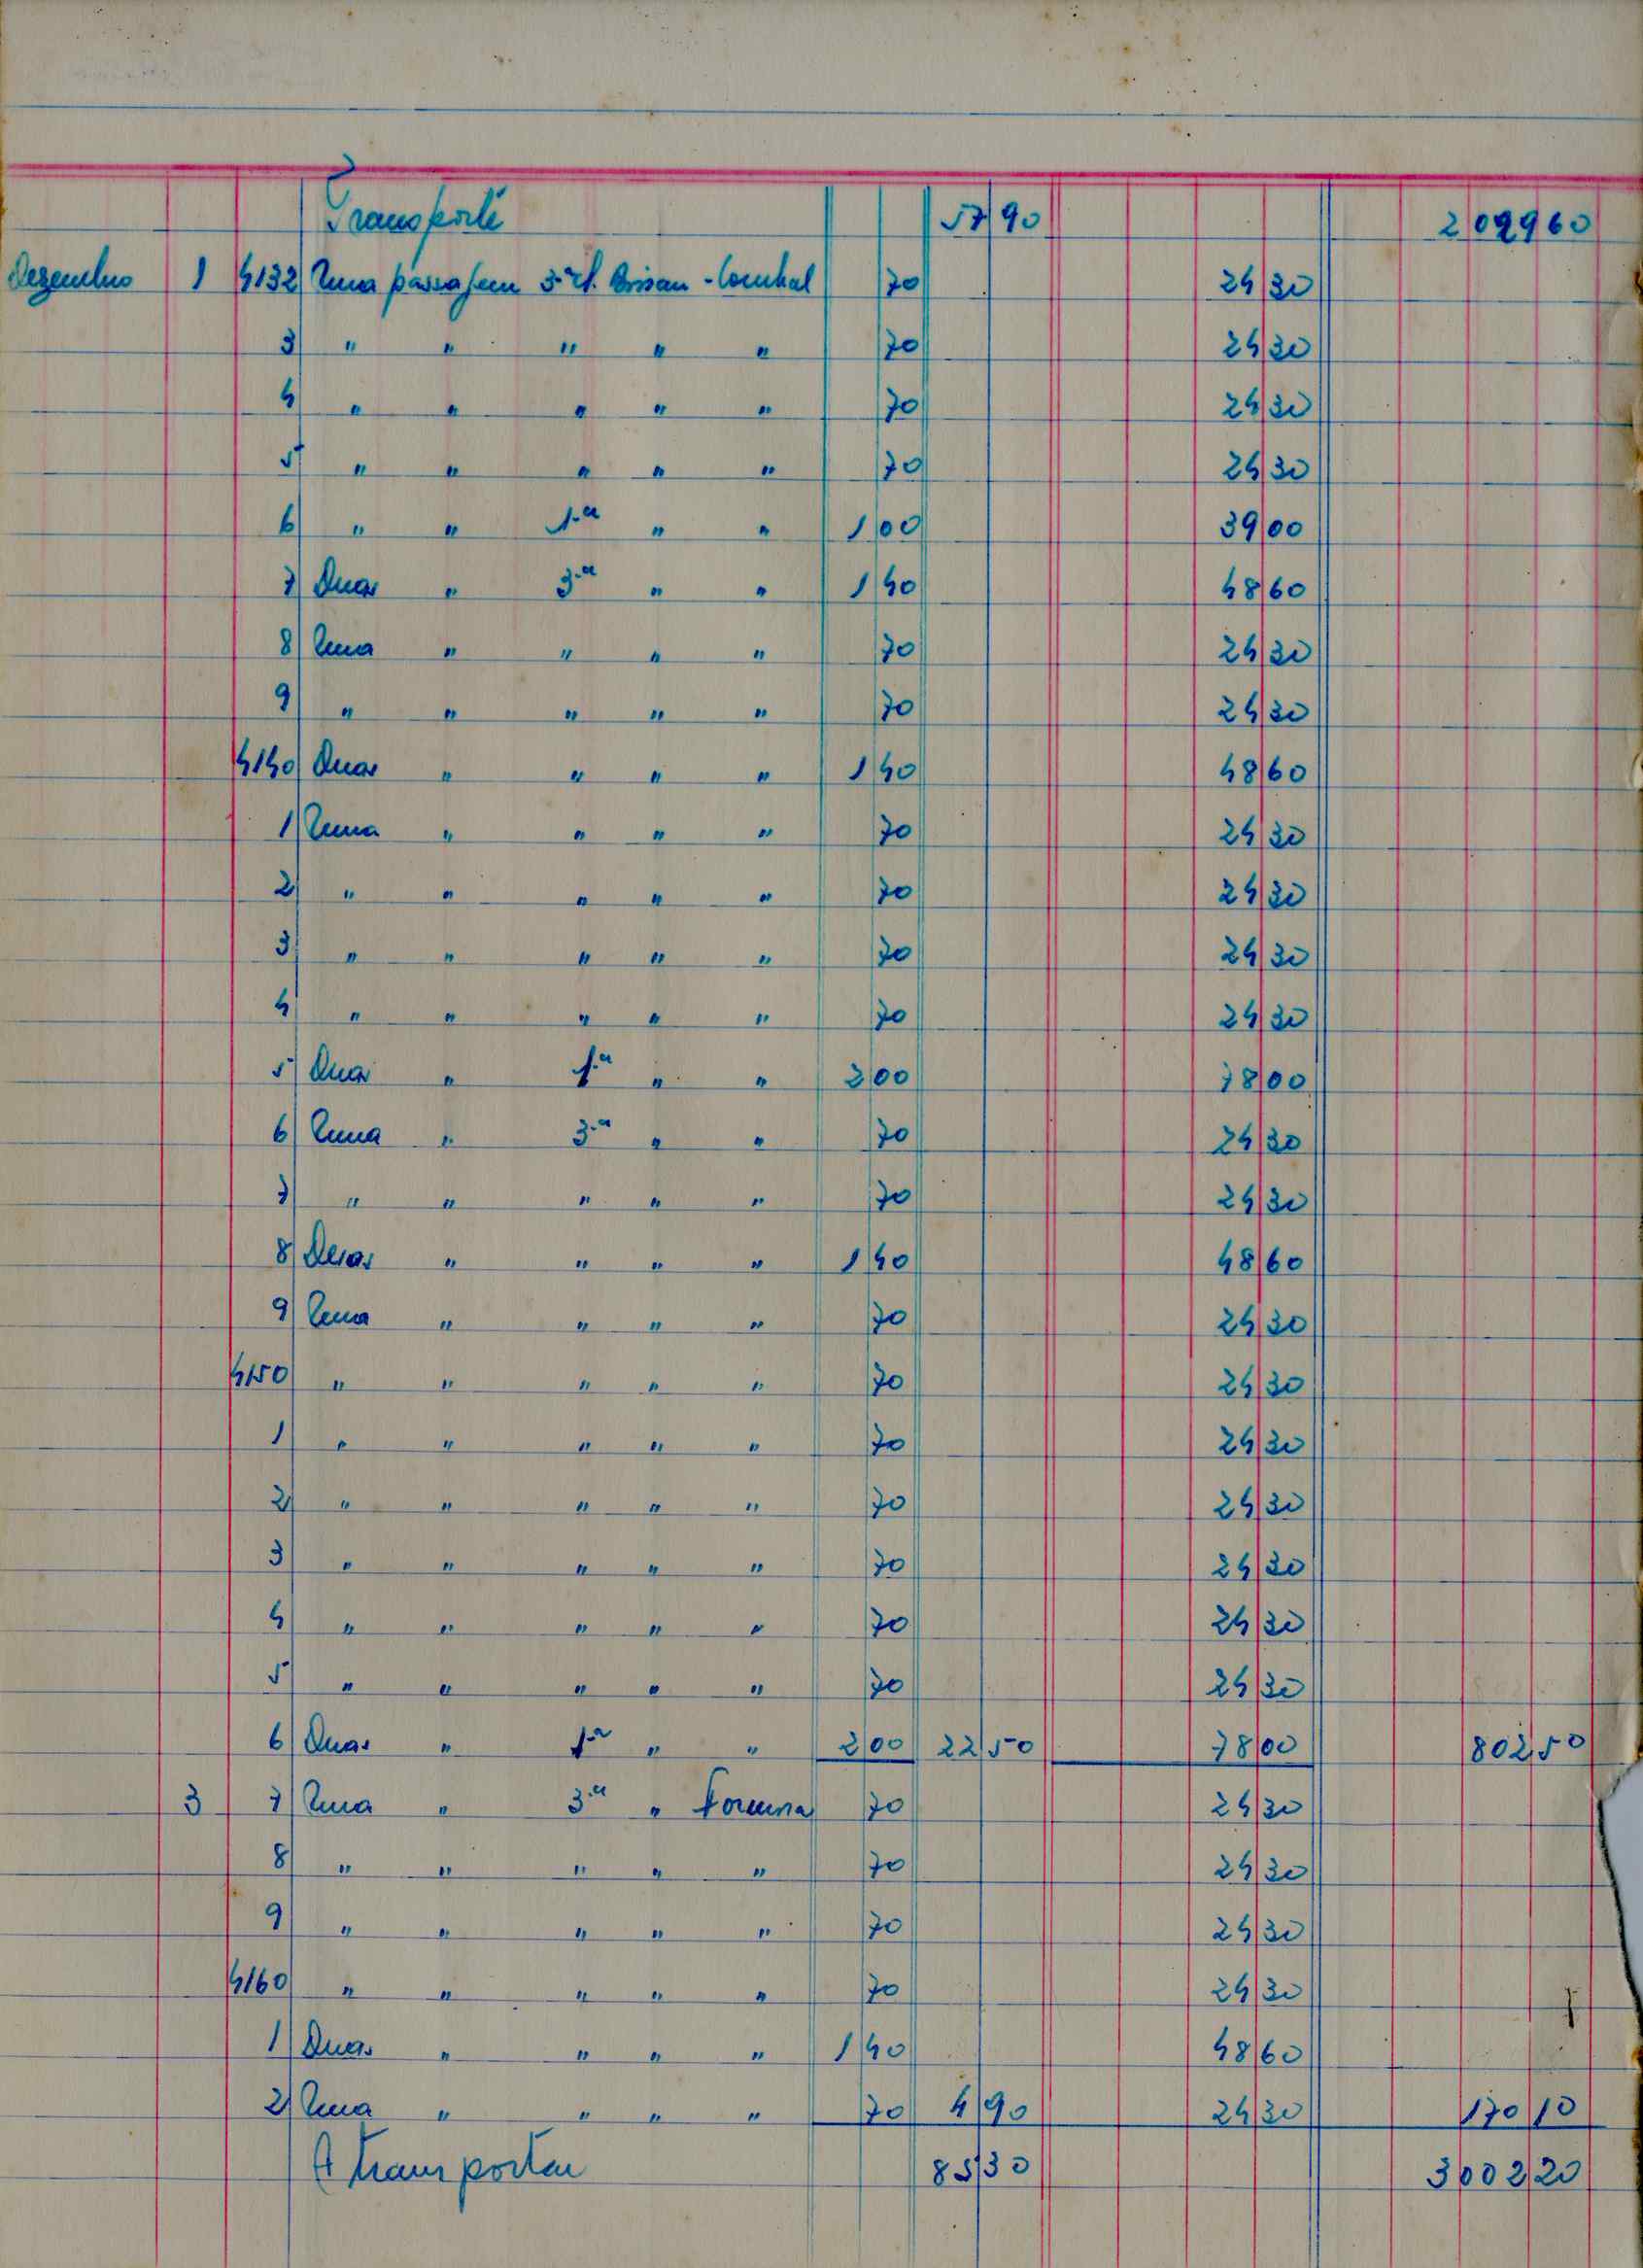 Transporte 57 90 2 029 60
Dezembro 1 4132 Uma passagem 3.ª cl. Bissau - 70 24 30
3 " " " " " 70 24 30
4 " " " " " 70 24 30
5 " " " " " 70 24 30
6 " " 1.ª " " 1 00 39 00
7 Duas " 3.ª " " 1 40 48 60
8 Uma " " " " 70 24 30
9 " " " " " 70 24 30
4140 Duas " " " " 1 40 48 60
1 Uma " " " " 70 24 30
2 " " " " " 70 24 30
3 " " " " " 70 24 30
4 " " " " " 70 24 30
5 Duas " 1.ª " " 2 00 78 00
6 Uma " 3.ª " " 70 24 30
7 " " " " " 70 24 30
8 Duas " " " " 1 40 48 60
9 Uma " " " " 70 24 30
4150 " " " " " 70 24 30
1 " " " " " 70 24 30
2 " " " " " 70 24 30
3 " " " " " 70 24 30
4 " " " " " 70 24 30
5 " " " " " 70 24 30
6 Duas " 1.ª " " 2 00 22 50 78 00 802 50
3 7 Uma " 3.ª " Formosa 70 24 30
8 " " " " " 70 24 30
9 " " " " " 70 24 30
4160 " " " " " 70 24 30
1 Duas " " " " 1 40 48 60
2 Uma " " " " 70 4 90 24 30 170 10
A transportar 85 30 3 002 20